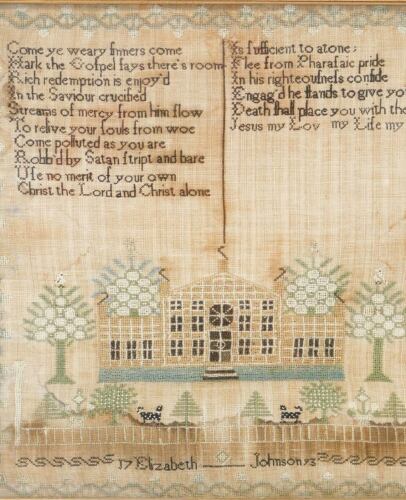 Come ye weary ſinners come
Hark the Goſpel ſays there's room
Rich redemption is enjoy'd
In the Saviour crucified
Streams of mercy from him flow
To relive your ſouls from woe
Come polluted as you are
Robb'd by Satan ſtript and bare
Uſe no merit of your own
Christ the Lord and Christ alone
Is ſufficient to atone;
Flee from Pharaſaic pride
In his righteouſneſs confide
Engag'd he ſtands to give yo
Death ſhall place you with the
Jesus my Lov my Life my
17 Elizabeth Johnson 93